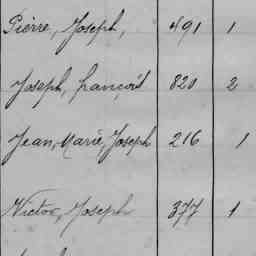 Pierre, Joseph, 491 1
Joseph, françois 820 2
Jean, Marie, Joseph 216 1
Victor, Joseph 377 1